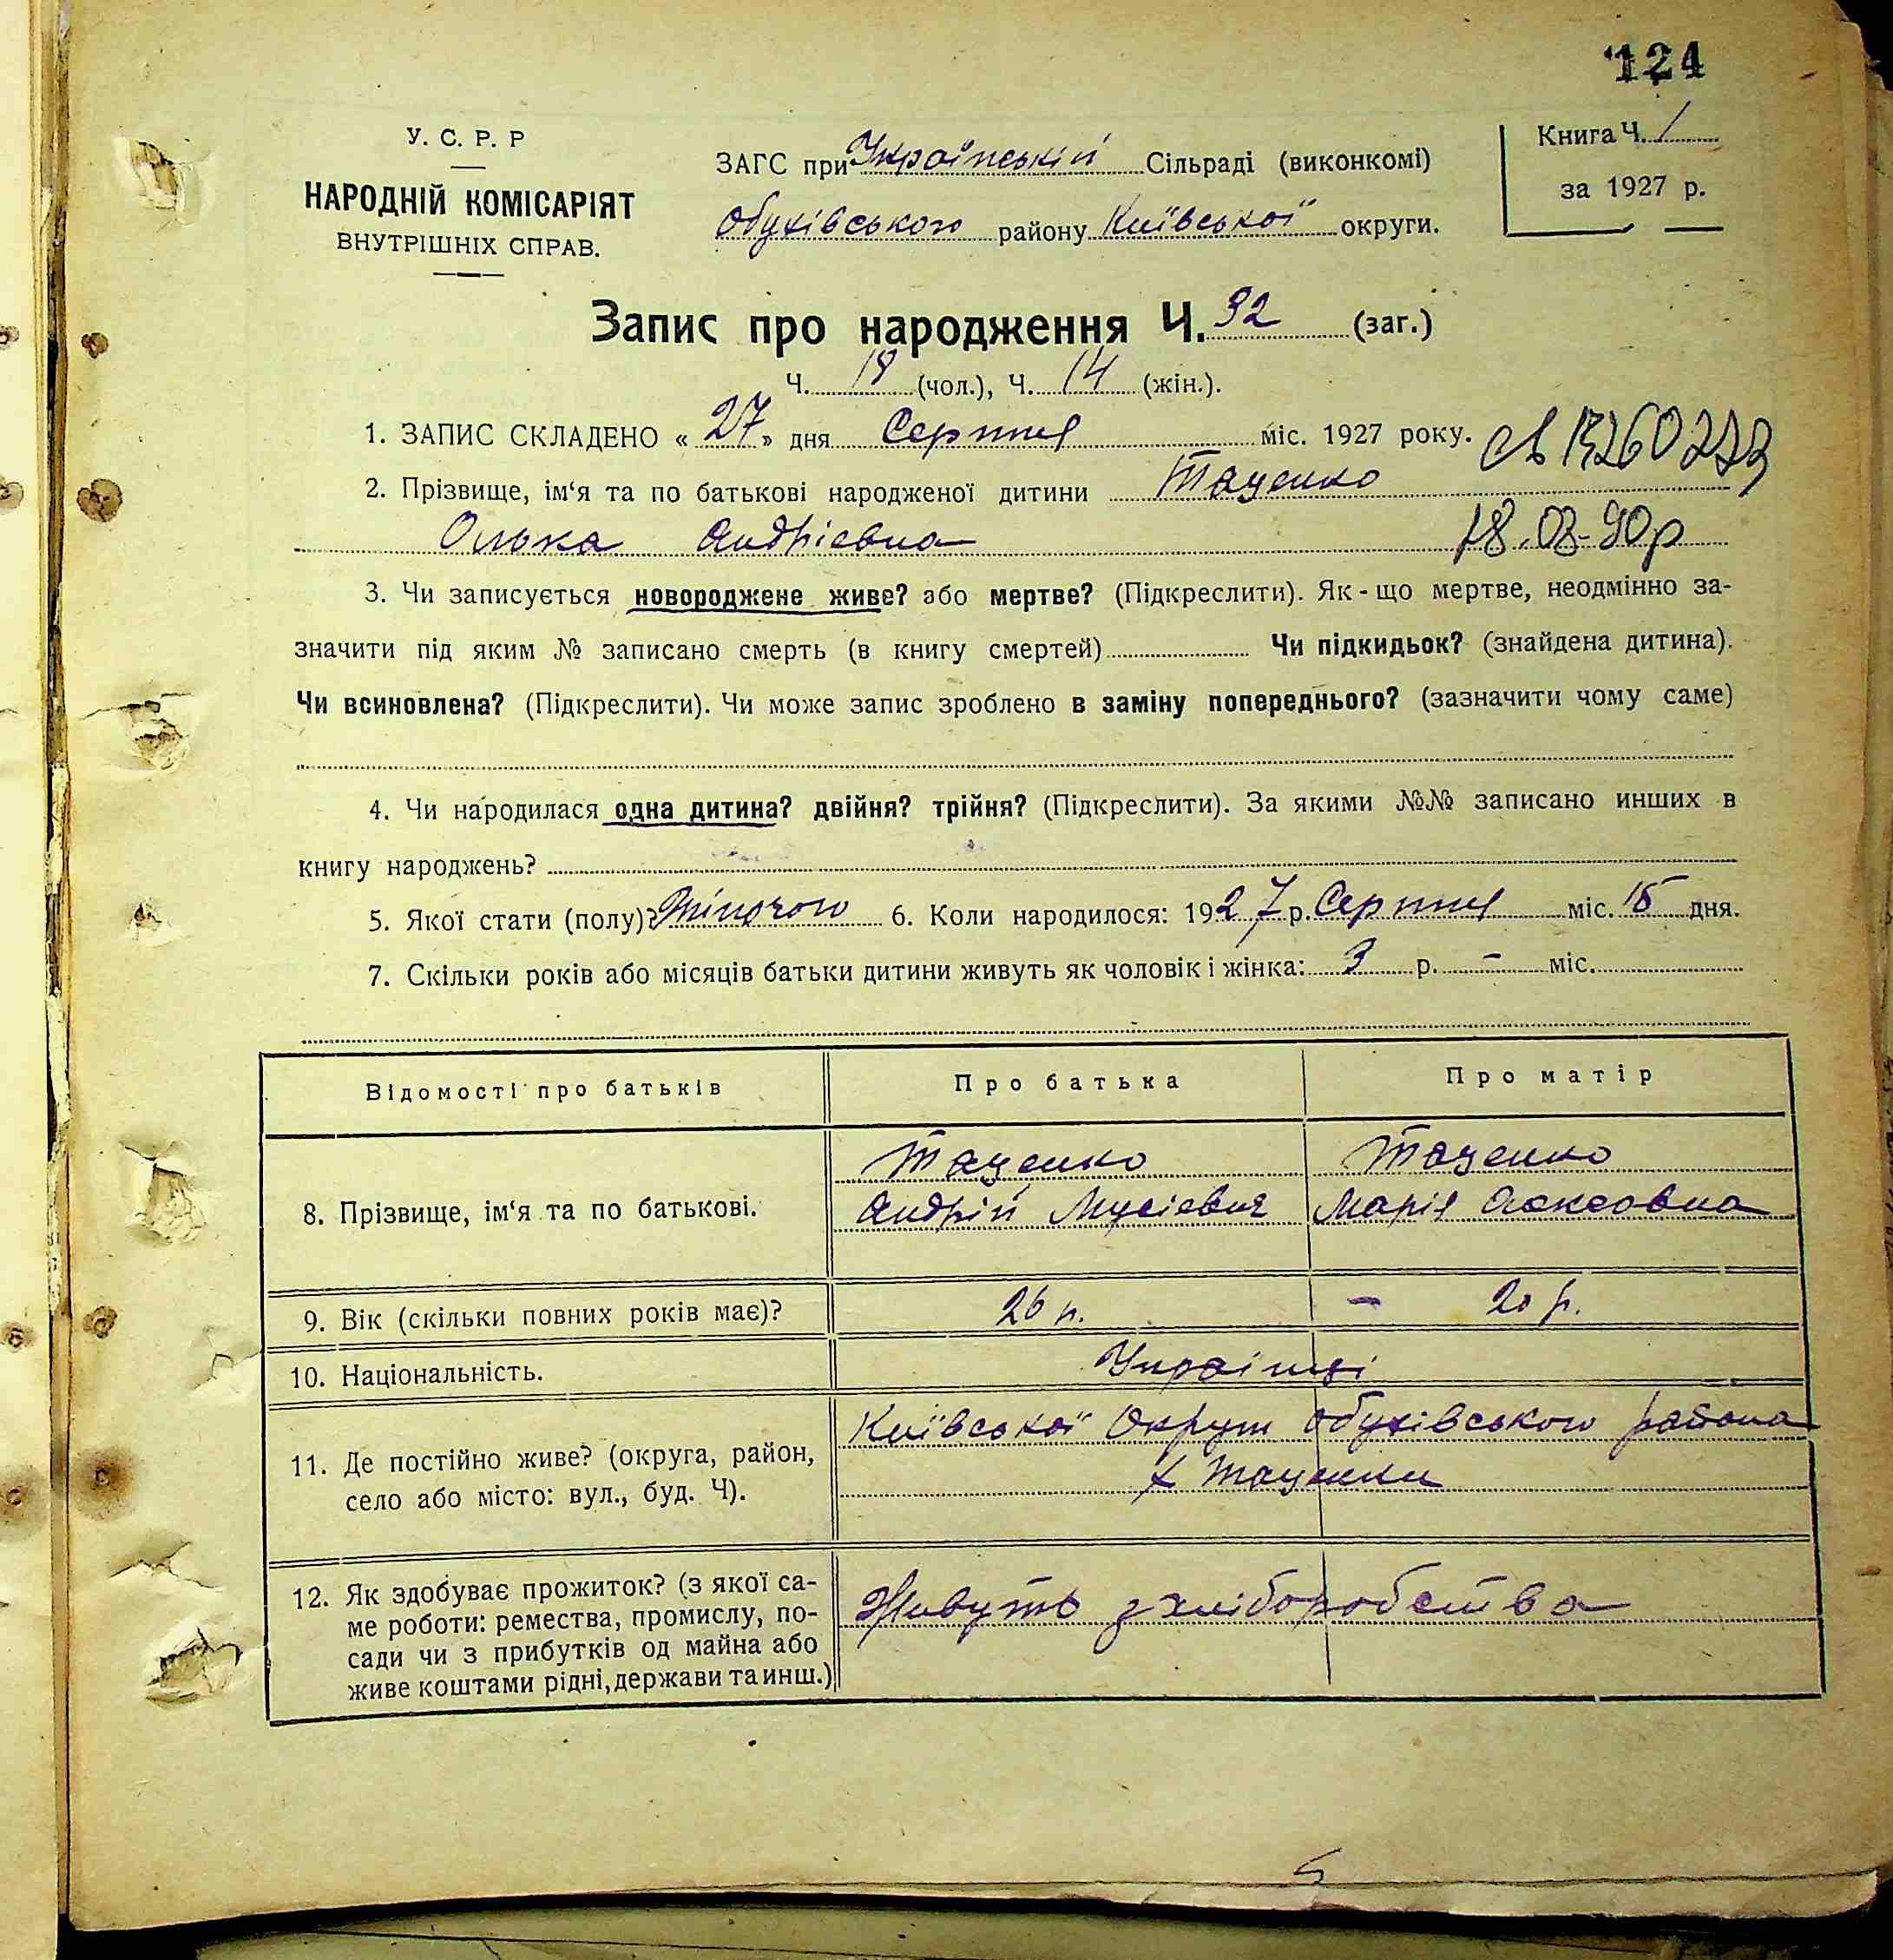 124
У. С. Р. Р
НАРОДНІЙ КОМІСАРІЯТ
ВНУТРІШНІХ СПРАВ.
ЗАГС при Українській Сільраді (виконкомі)
Обухівського району Київської округи.
Книга Ч. 1
за 1927 р.
Запис про народження Ч. 32 (заг.)
Ч. 18 (чол.), Ч. 14 (жін.).
1. ЗАПИС СКЛАДЕНО « 27 » дня Серпня міс. 1927 року.
2. Прізвище, ім‘я та по батькові народженої дитини Таценко
Олька Андрієвна 18.08-90р
3. Чи записується новороджене живе? або мертве? (Підкреслити). Як-що мертве, неодмінно за-
значити під яким № записано смерть (в книгу смертей) Чи підкидьок? (знайдена дитина).
Чи всиновлена? (Підкреслити). Чи може запис зроблено в заміну попереднього? (зазначити чому саме)
4. Чи народилася одна дитина? двійня? трійня? (Підкреслити). За якими №№ записано инших в
книгу народжень?
5. Якої стати (полу)? Жіночого 6. Коли народилося: 1927 р. Серпня міс. 15 дня.
7. Скільки років або місяців батьки дитини живуть як чоловік і жінка: 3 р. - міс.
Відомості про батьків Про батька Про матір
Таценко Таценко
8. Прізвище, ім‘я та по батькові. Андрій Мусієвич Марія
9. Вік (скільки повних років має)? 26 р. - 20 р.
10. Національність. Українці
Київської Округи Обухівського района
11. Де постійно живе? (округа, район,
х Таценки
село або місто: вул., буд. Ч).
12. Як здобуває прожиток? (з якої са-
Живуть з хліборобства
ме роботи: ремества, промислу, по-
сади чи з прибутків од майна або
живе коштами рідні, держави та инш.)